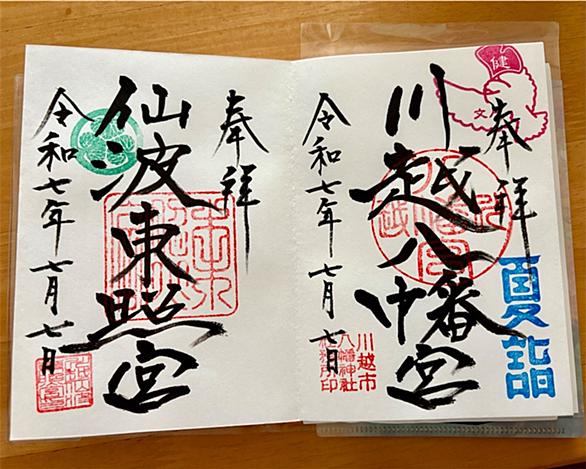 奉拝
川越八幡宮
令和七年七月七日
健
文
夏詣
川越市
八幡神社
社務所印
奉拝
仙波東照宮
令和七年七月七日